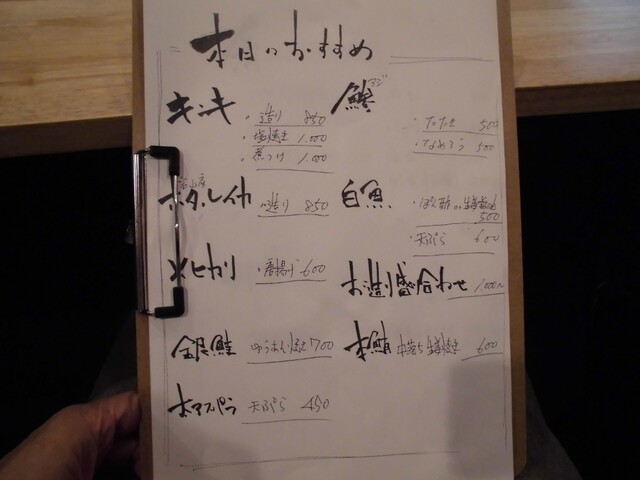 本日のおすすめ
キンキ
・造り 850
・塩焼き 1,000
・煮つけ 1,000
富山産
ホタルイカ
・造り 850
メヒカリ
・唐揚げ 600
銀鱈
ゆうあん焼き 700
ホワイトアスパラ
天ぷら 450
鯵 アジ
・たたき 500
・なめろう 500
白魚
・ぽん酢 or 生姜醤油 500
・天ぷら 600
お造り盛り合わせ
1,000〜
中落ち 600